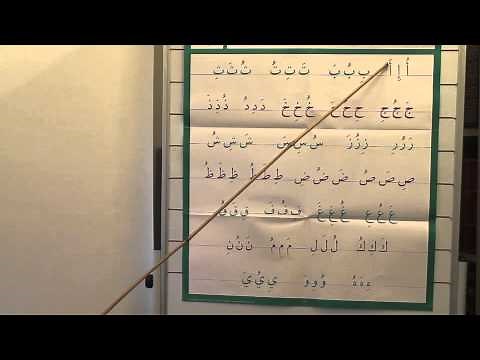 أُ إِ أَ بِ بُ بَ تَ تِ تُ ثُ ثَ ثِ
جَ جُ جِ حِ حُ حَ خُ خِ خَ دَ دِ دُ ذُ ذِ ذَ
رَ رُ رِ زِ زُ زَ سُ سِ سَ شَ شِ شُ
صِ صَ صُ ضَ ضُ ضِ طِ طَ طُ ظِ ظَ ظُ
عَ عُ عِ غُ غِ غَ فِ فُ فَ قَ قِ قُ
كَ كِ كُ لُ لَ لِ مَ مِ مُ نَ نُ نِ
هِ هَ هُ وُ وِ وَ يِ يُ يَ